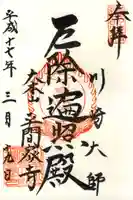 奉拝
川崎大師
厄除遍照殿
大本山
平間寺
平成十七年
三月